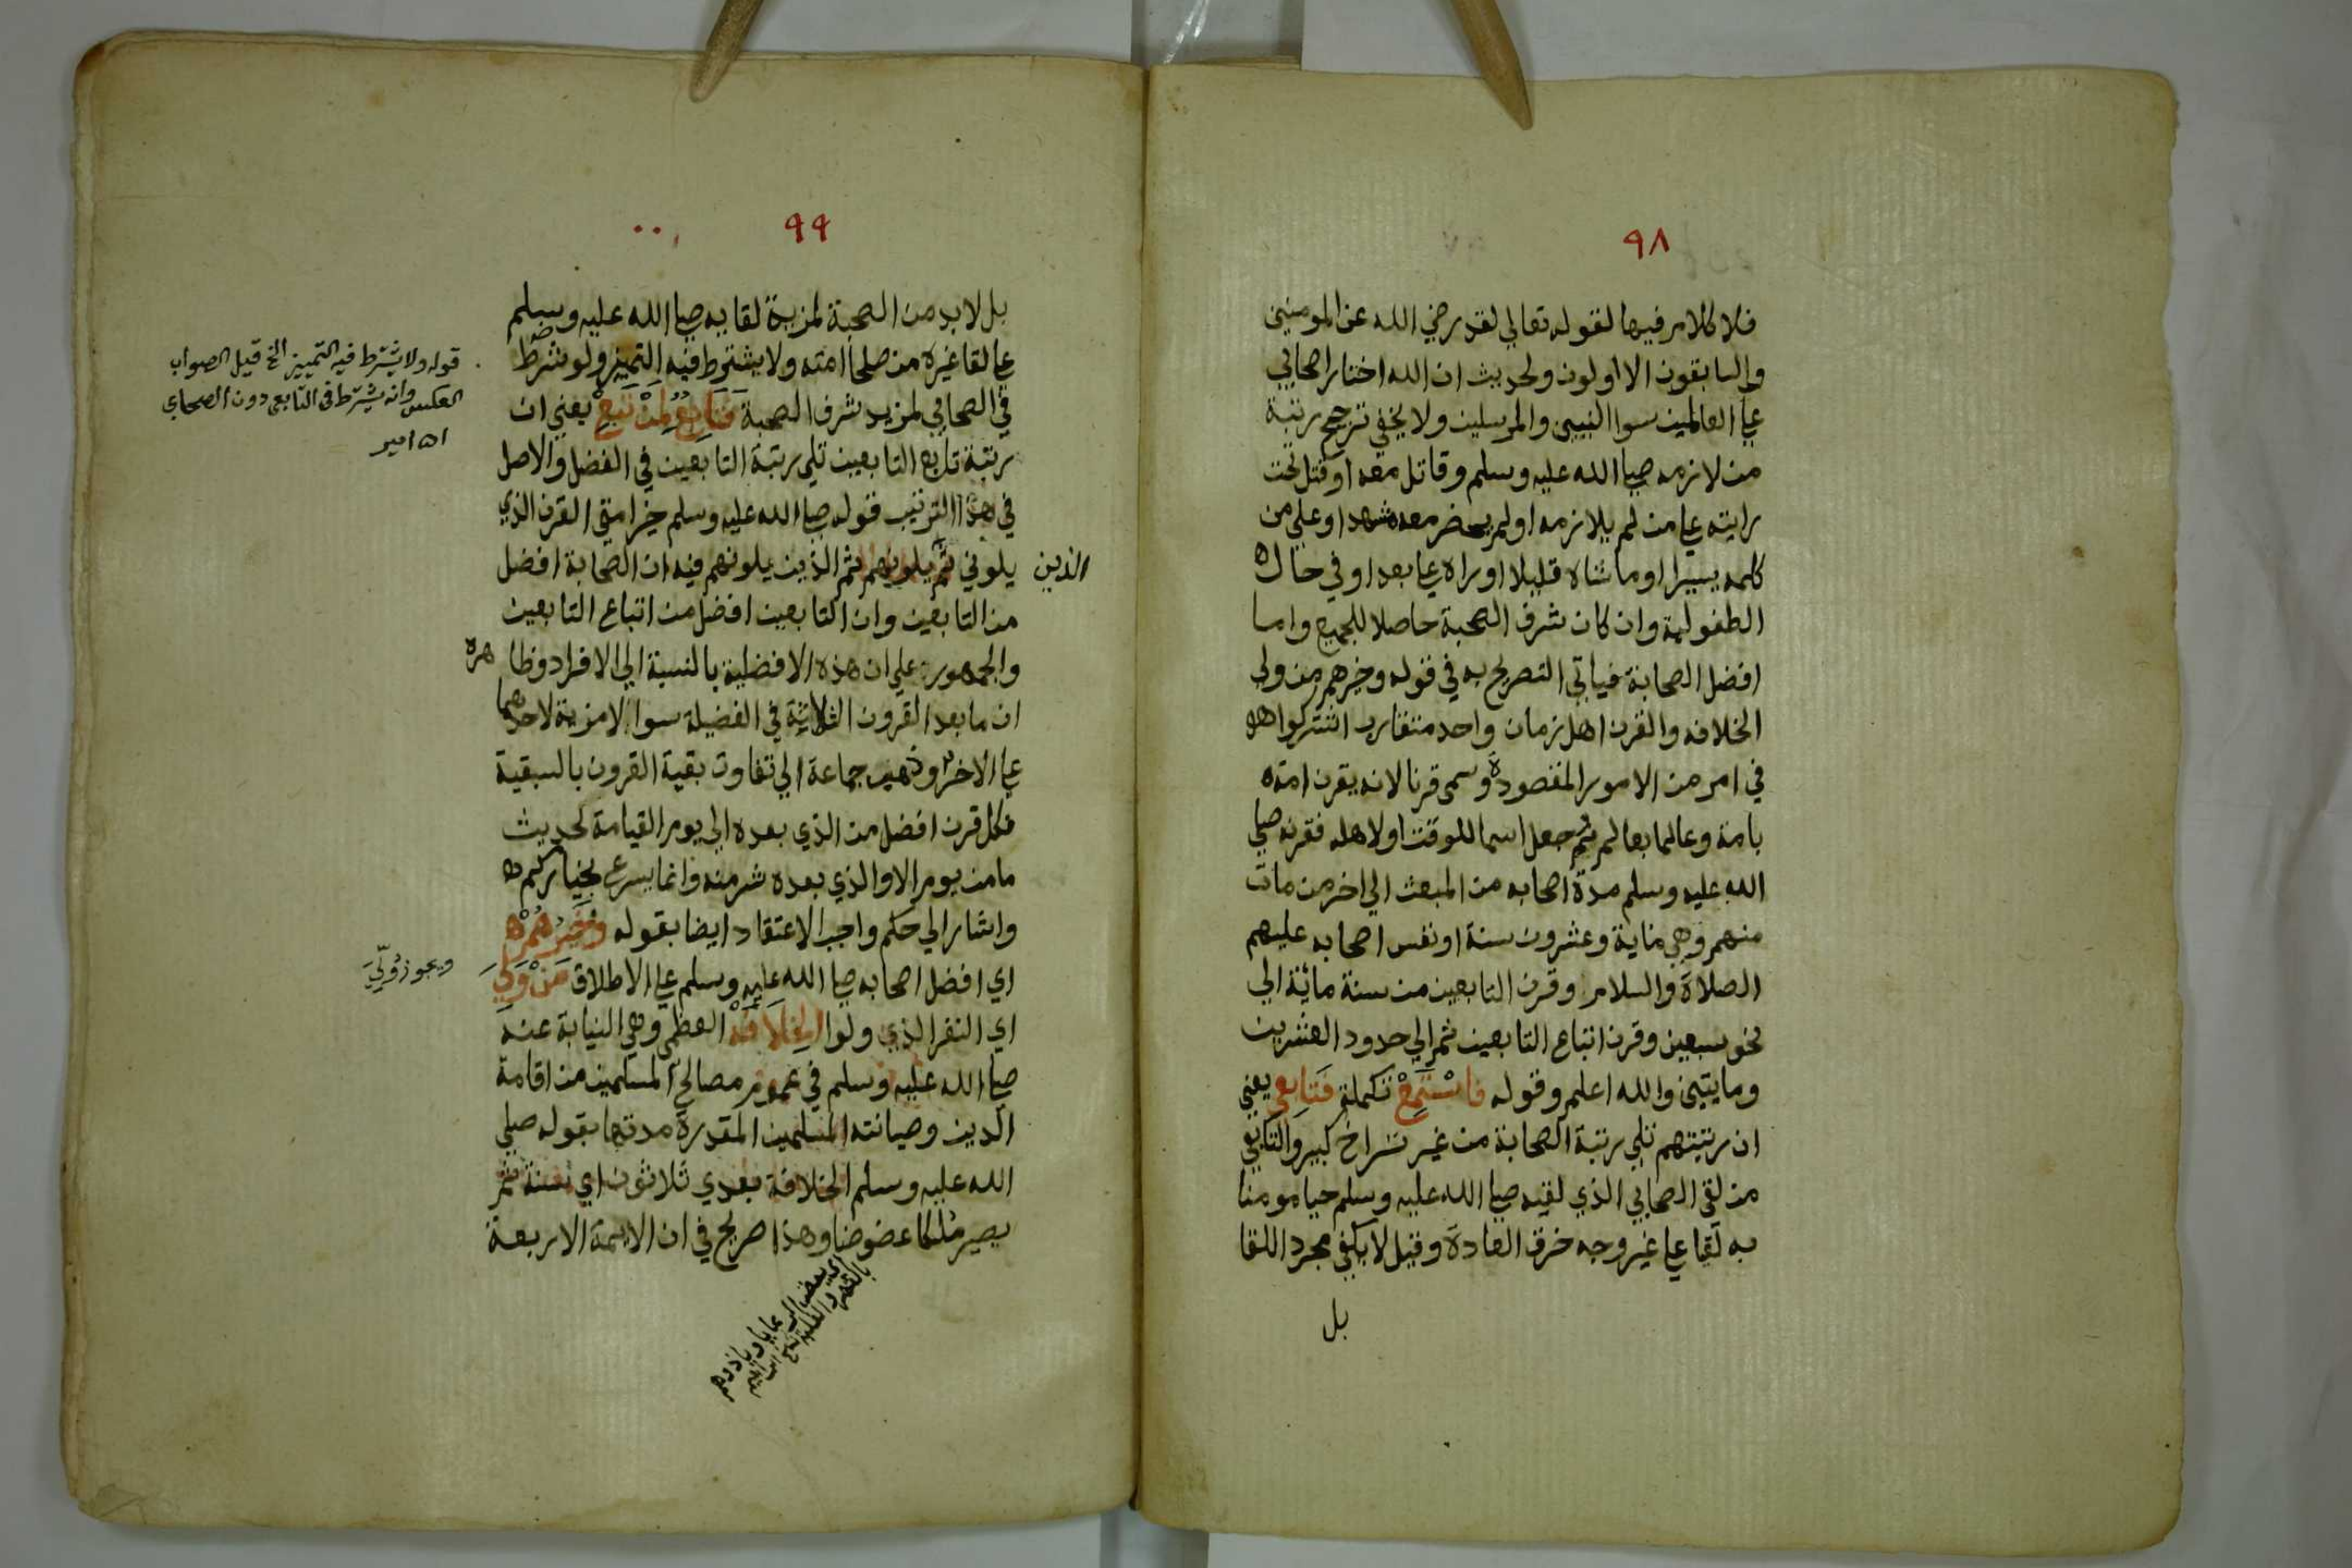 ٩٨
فلا كلام فيها لقوله تعالي لقد رضي الله عن المومنين
والسابقون الاولون ولحديث ان الله اختار اصحابي
علي العالمين سوا النبيين والمرسلين ولا يخفي ترجيح رتبة
من لازمه صلي الله عليه وسلم وقاتل معه او قتل تحت
رايته علي من لم يلازمه او لم يحضر معه مشهدا وعلي من
كلمه يسيرا او ماشاه قليلا او راه علي بعد او في حال
الطفولية وان كان شرف الصحبة حاصلا للجميع واما
افضل الصحابة فياتي التصريح به في قوله وخيرهم من ولي
الخلافه والقرن اهل زمان واحد متقارب اشتركوا
في امر من الامور المقصودة وسمي قرنا لانه يقرن امة
بامة وعالما بعالم ثم جعل اسما للوقت او لاهله فقرنه صلي
الله عليه وسلم مدة اصحابه من المبعث الي اخر من مات
منهم وهي ماية وعشرون سنة او نفس اصحابه عليهم
الصلاة والسلام وقرن التابعين من سنة مائة الي
نحو سبعين وقرن اتباع التابعين ثم الي حدود العشرين
ومايتين والله اعلم وقوله فاستمع تكملة فتابعي يعني
ان رتبتهم تلي رتبة الصحابة من غير تراخ كبير والتابعي
من لقي الصحابي الذي لقيه صلي الله عليه وسلم حيا مومنا
به لقيا علي غير وجه خرق العادة وقيل لا يكفي مجرد اللقا
بل
٩٩
بل لابد من الصحبة لمزية لقايه صلي الله عليه وسلم
علي لقا غيره من صلحا امته ولا يشترط فيه التمييز ولو شرط
في الصحابي لمزيد شرف الصحبة فتابع لمن تبع يعني ان
رتبة تابع التابعين تلي رتبة التابعين في الفضل والاصل
في هذا الترتيب قوله صلي الله عليه وسلم خير امتي القرن الذي
يلوني ثم يلونهم ثم الذين يلونهم فيه ان الصحابة افضل
الذين
من التابعين وان التابعين افضل من اتباع التابعين
والجمهور علي ان هذه الافضلية بالنسبة الي الافراد وظاهره
ان ما بعد القرون الثلاثة في الفضيلة سوا لا مزية لاحدهما
علي الاخر وذهب جماعة الي تفاوت بقية القرون بالسبقية
فكل قرن افضل من الذي بعده الي يوم القيامة لحديث
ما من يوم الا والذي بعده شر منه وانما يسرع بخياركم
واشار الي حكم واجب الاعتقاد ايضا بقوله وخيرهم
اي افضل اصحابه صلي الله عليه وسلم علي الاطلاق من ولي
اي النفر الذي ولوا الخلافه العظمي وهي النيابة عنه
صلي الله عليه وسلم في عموم مصالح المسلمين من اقامة
الدين وصيانته المسلمين المقدرة مدتها بقوله صلي
الله عليه وسلم الخلافة بعدي ثلاثون اي سنة ثم
يصير ملكا عضوضا وهذا صريح في ان الايمة الاربعة
قوله ولا يشترط فيه التمييز الخ قيل الصواب
العكس وانه يشترط في التابعي دون الصحابي
اه امير
ويجوز وُلّيَ